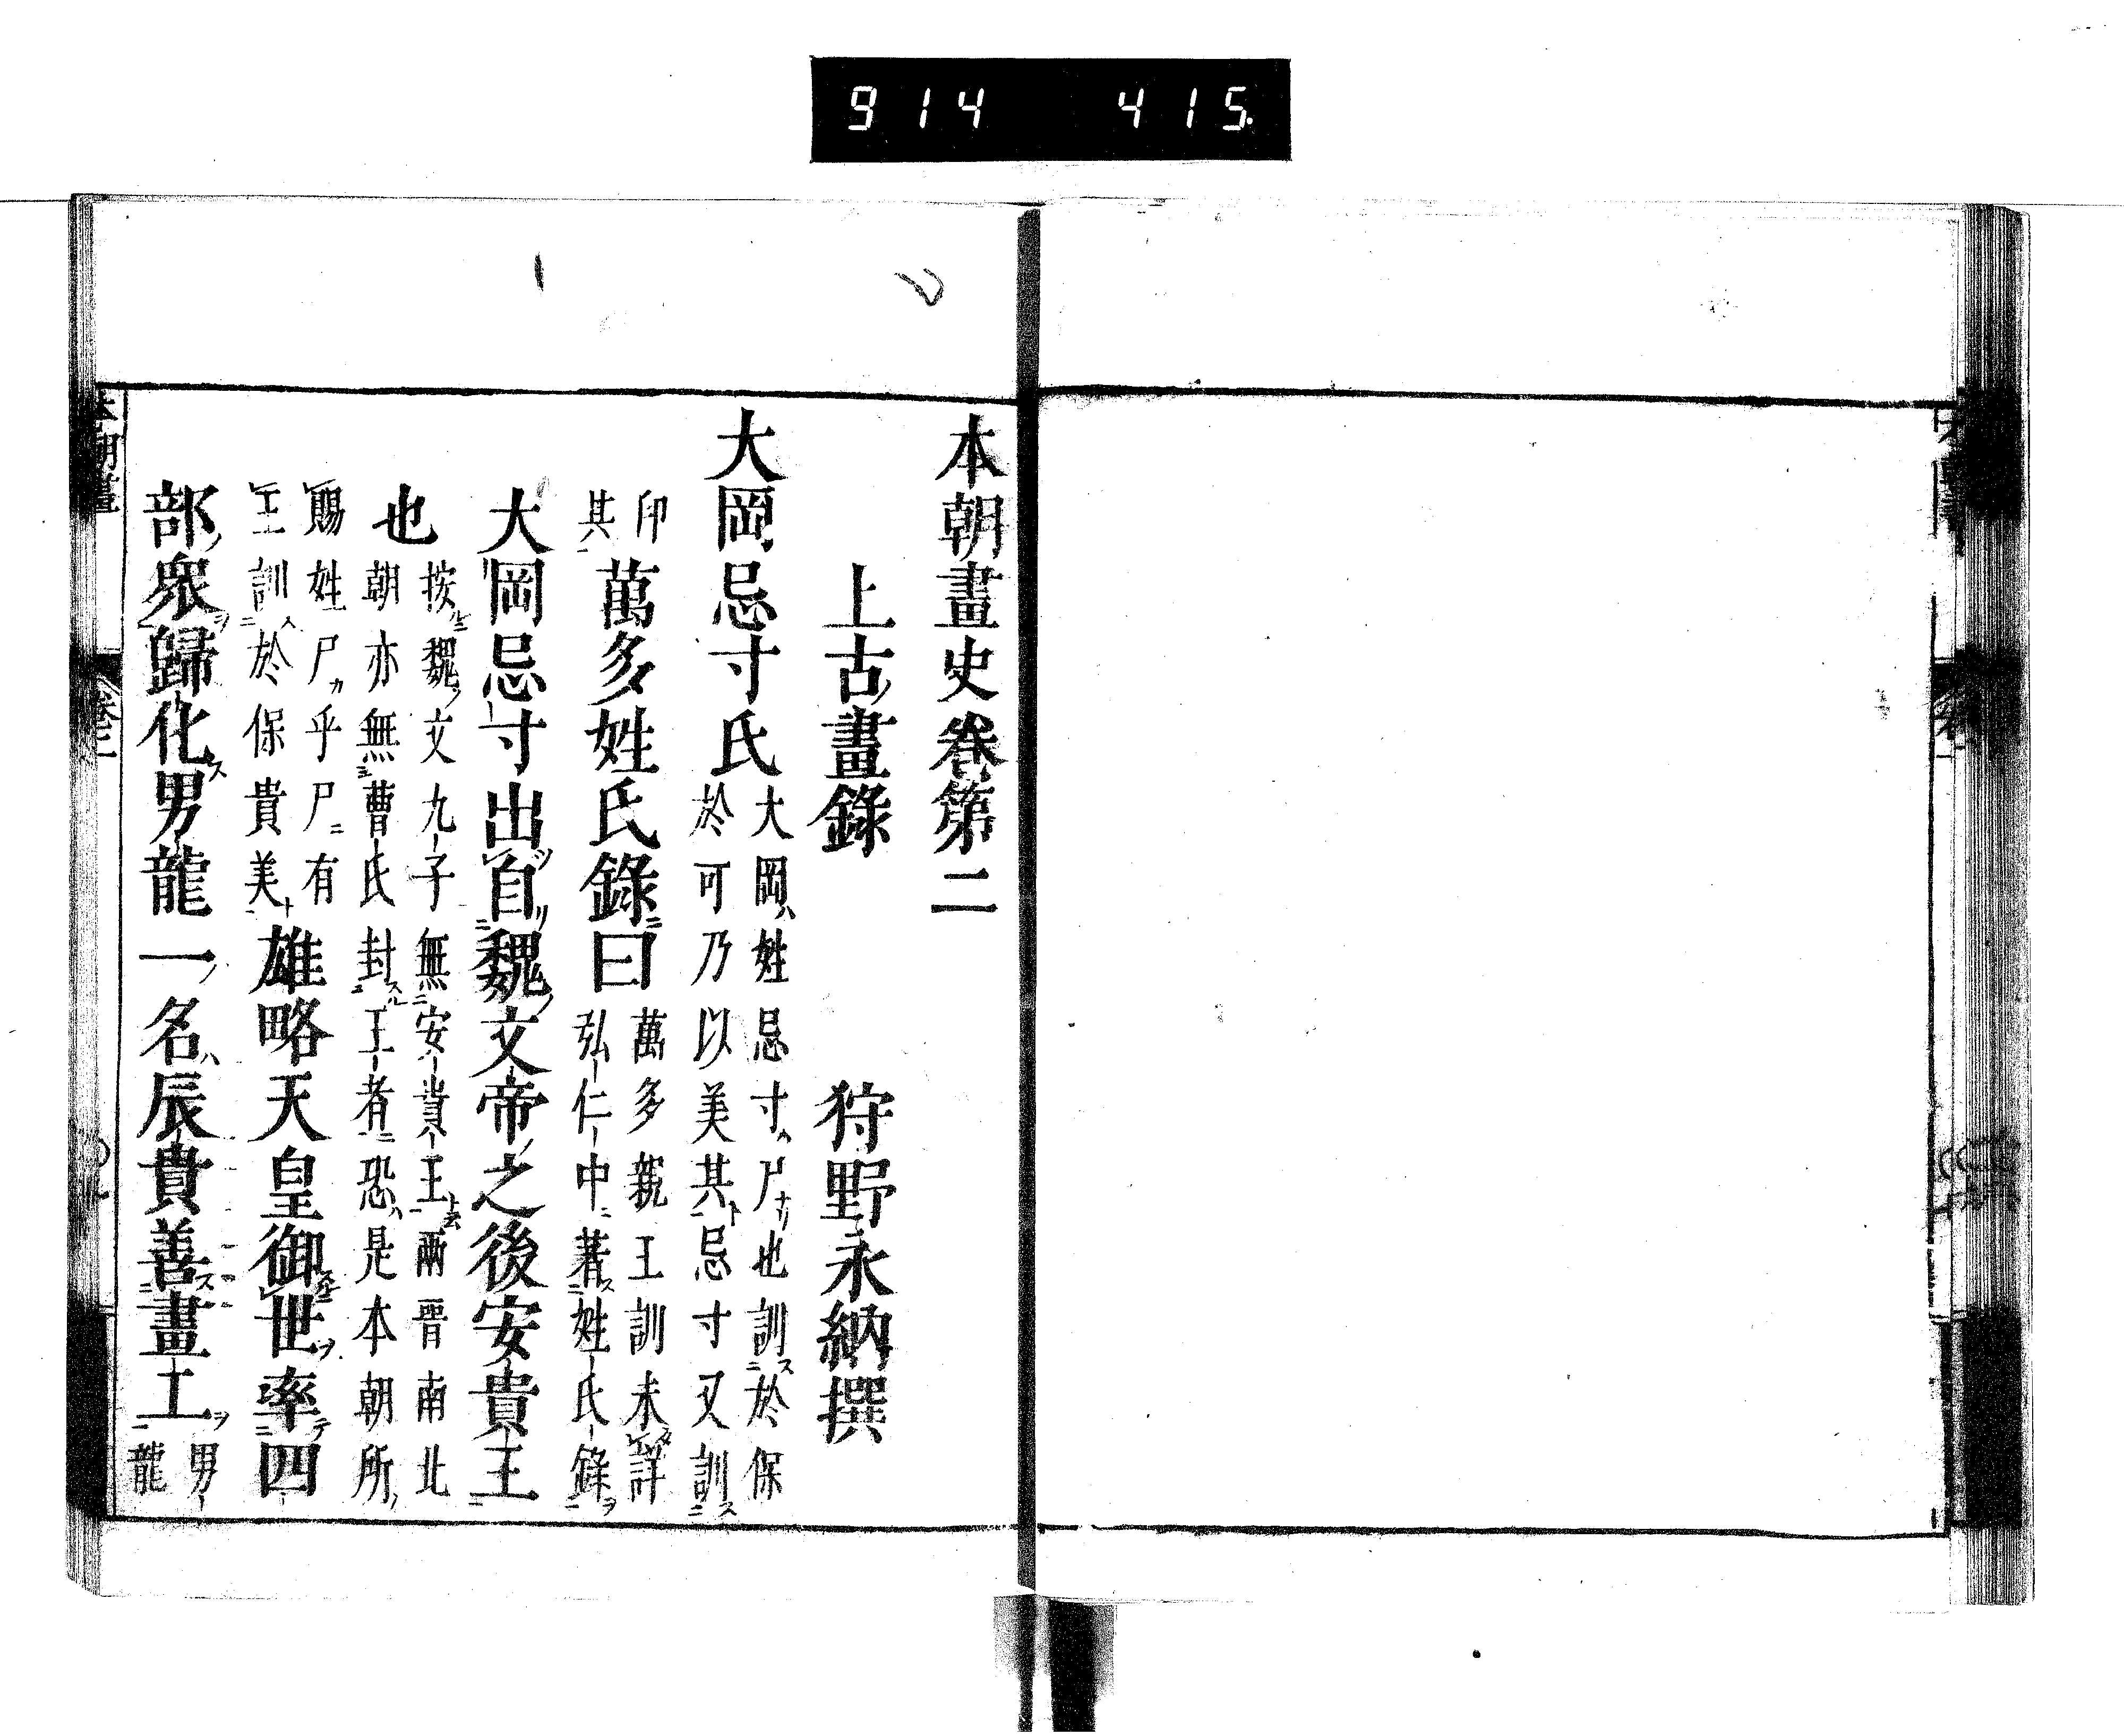 914 415.
本朝畫史卷第二
上古畫錄　狩野永納撰
大岡忌寸氏
大岡ハ姓忌寸ハ尸ナリ也訓ス二於保
於可乃以美其ト忌寸又訓ス二
印
其
萬多姓氏錄二曰
萬多親王訓未タレ詳
弘仁中二著ス二姓氏錄ヲ一
大岡忌寸出ツレ自リ二魏ノ文帝ノ之後安貴王一
也
按ルニ二魏ノ文九子無二安貴王ト云一兩晉南北
朝亦無三曹氏封スル二王者一恐ハ是本朝所ノ
レ賜姓尸カ乎尸二有
レ王訓ハ二於保貴美ト一
雄略天皇御レ世ヲ率テ二四
部ノ衆ヲ一歸化ス男龍一ノ名ハ辰貴善ス二畫工ヲ一
男
龍
本朝畫
卷二